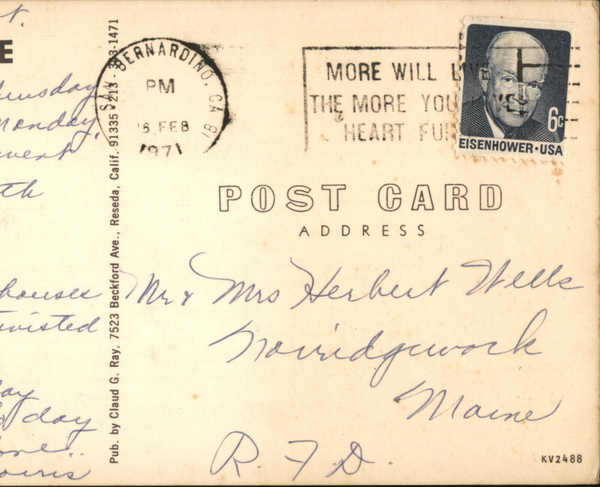 E
Monday,
went
houses
twisted
day
day
Pub. by Claud G. Ray, 7523 Beckford Ave., Reseda, Calif. 91335 - 213 - 343-1471
SAN BERNARDINO, CA
PM
FEB
1971
MORE WILL LIVE
THE MORE YOU GIVE
HEART FUND
6c
EISENHOWER·USA
POST CARD
ADDRESS
Mr & Mrs Herbert Wells
Norridgewock
Maine
R. F. D.
KV2488